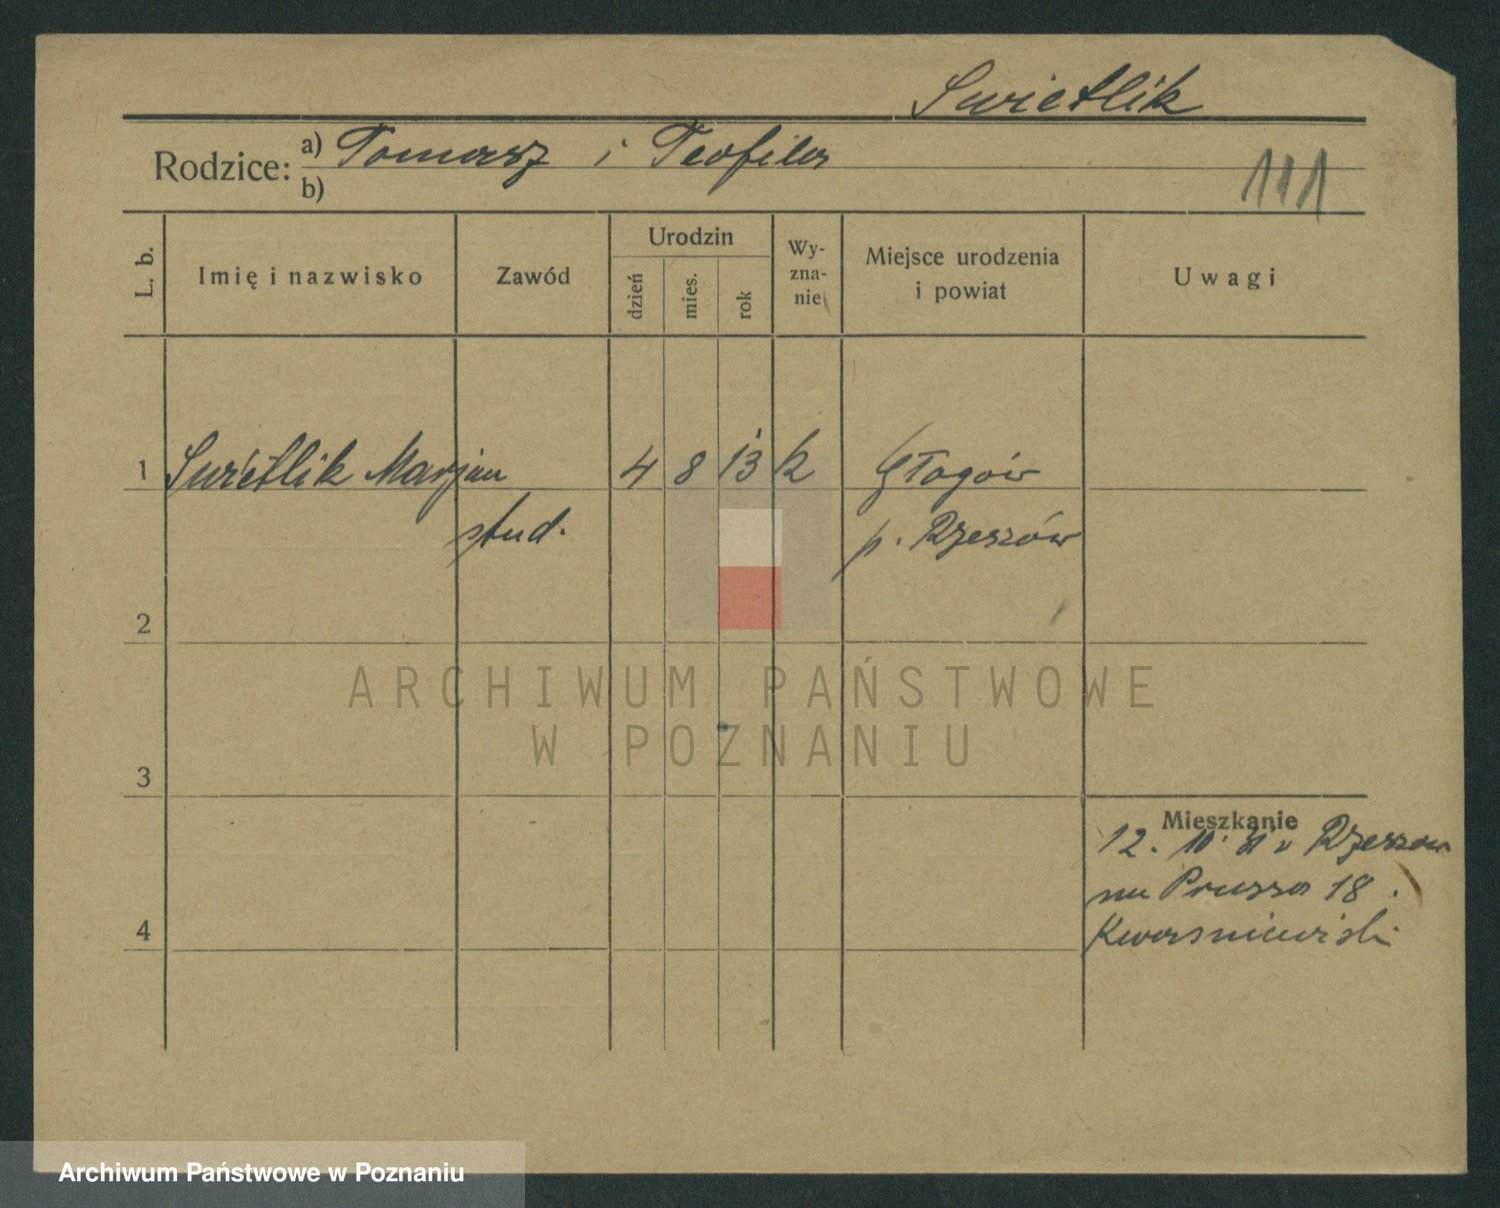 Swietlik
Rodzice: a) Tomasz i Teofila
b)
111
L. b.
Imię i nazwisko
Zawód
Urodzin
dzień
mies.
rok
Wy-
zna-
nie
Miejsce urodzenia
i powiat
Uwagi
1 Swietlik Marjan 4 8 13 k Głogów
stud. p. Rzeszów
2
3
4
Mieszkanie
12. 10. 31 v Rzeszow
na Prusa 18.
Kwasniewski
ARCHIWUM PAŃSTWOWE
W POZNANIU
Archiwum Państwowe w Poznaniu